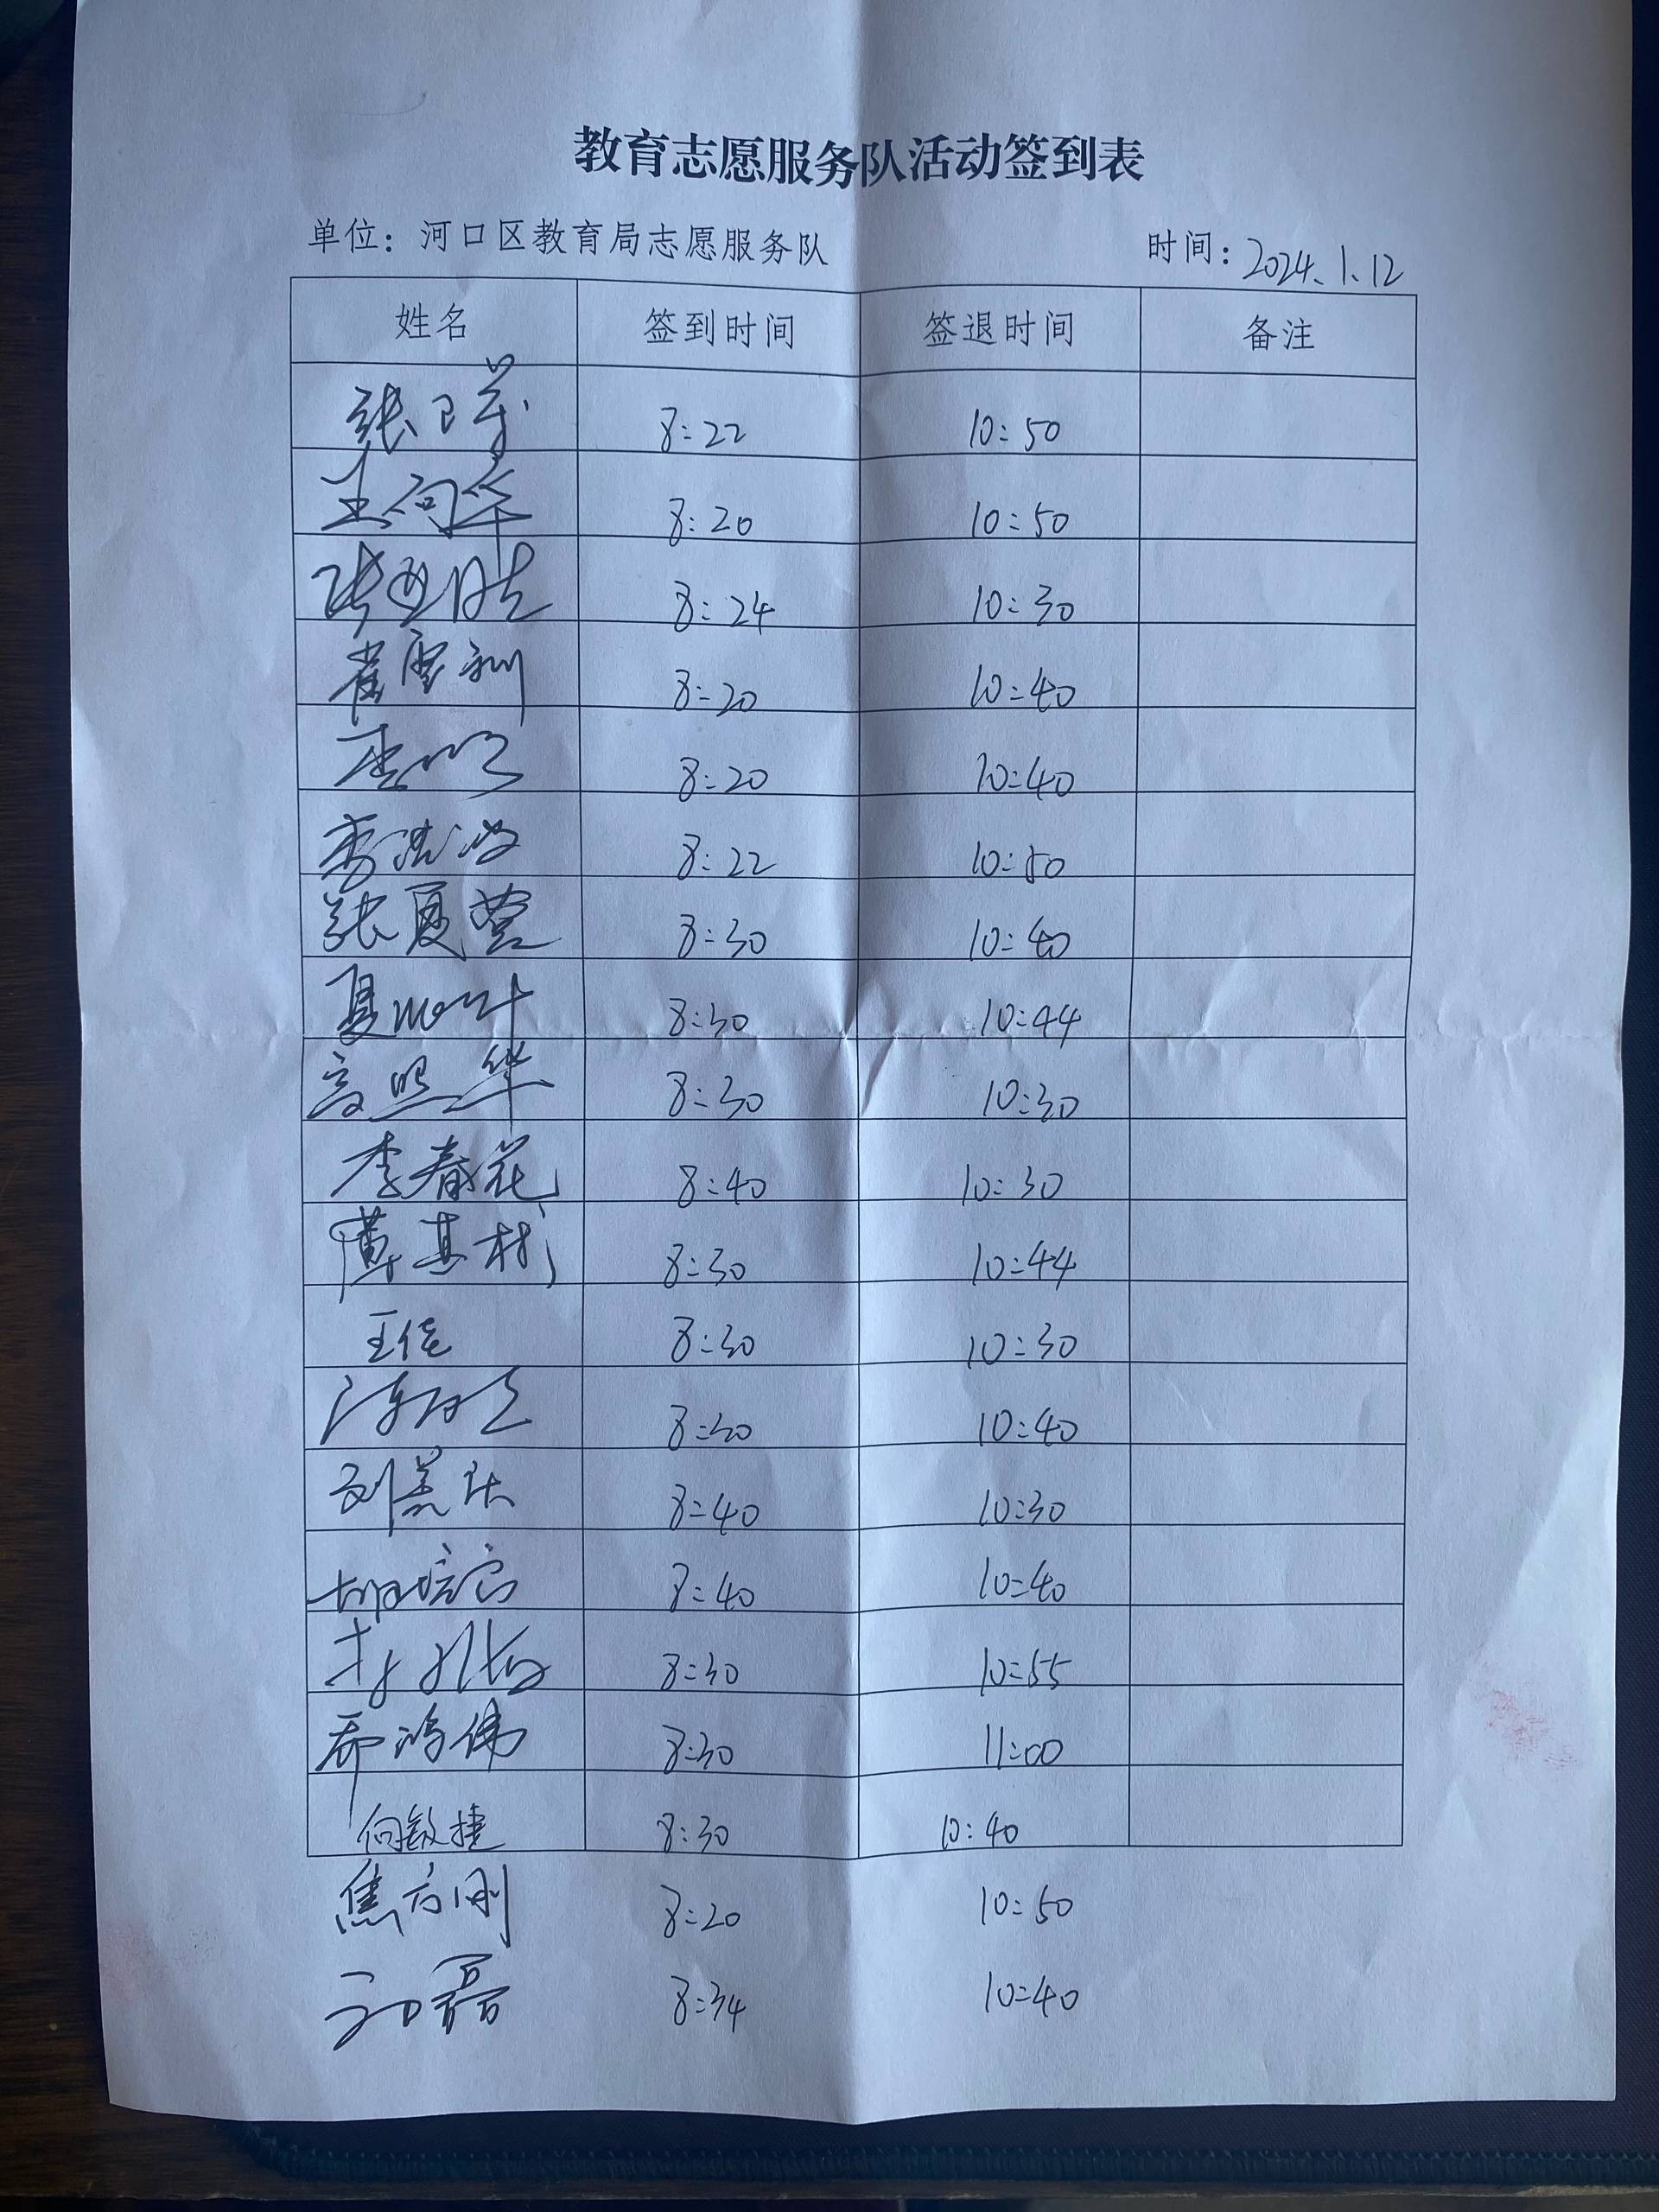 教育志愿服务队活动签到表
单位：河口区教育局志愿服务队 时间：2024.1.12
姓名 签到时间 签退时间 备注
张卫芳 8:22 10:50
王向华 8:20 10:50
张 8:24 10:30
崔雪 8:20 10:40
8:20 10:40
李洪波 8:22 10:50
张夏莹 8:30 10:40
夏 8:30 10:44
高照华 8:30 10:30
李春花 8:40 10:30
薄其彬 8:30 10:44
王佳 8:30 10:30
8:30 10:40
刘 8:40 10:30
胡培 8:40 10:40
8:30 10:55
鸿伟 8:30 11:00
向敏捷 8:30 10:40
焦方刚 8:20 10:50
磊 8:34 10:40